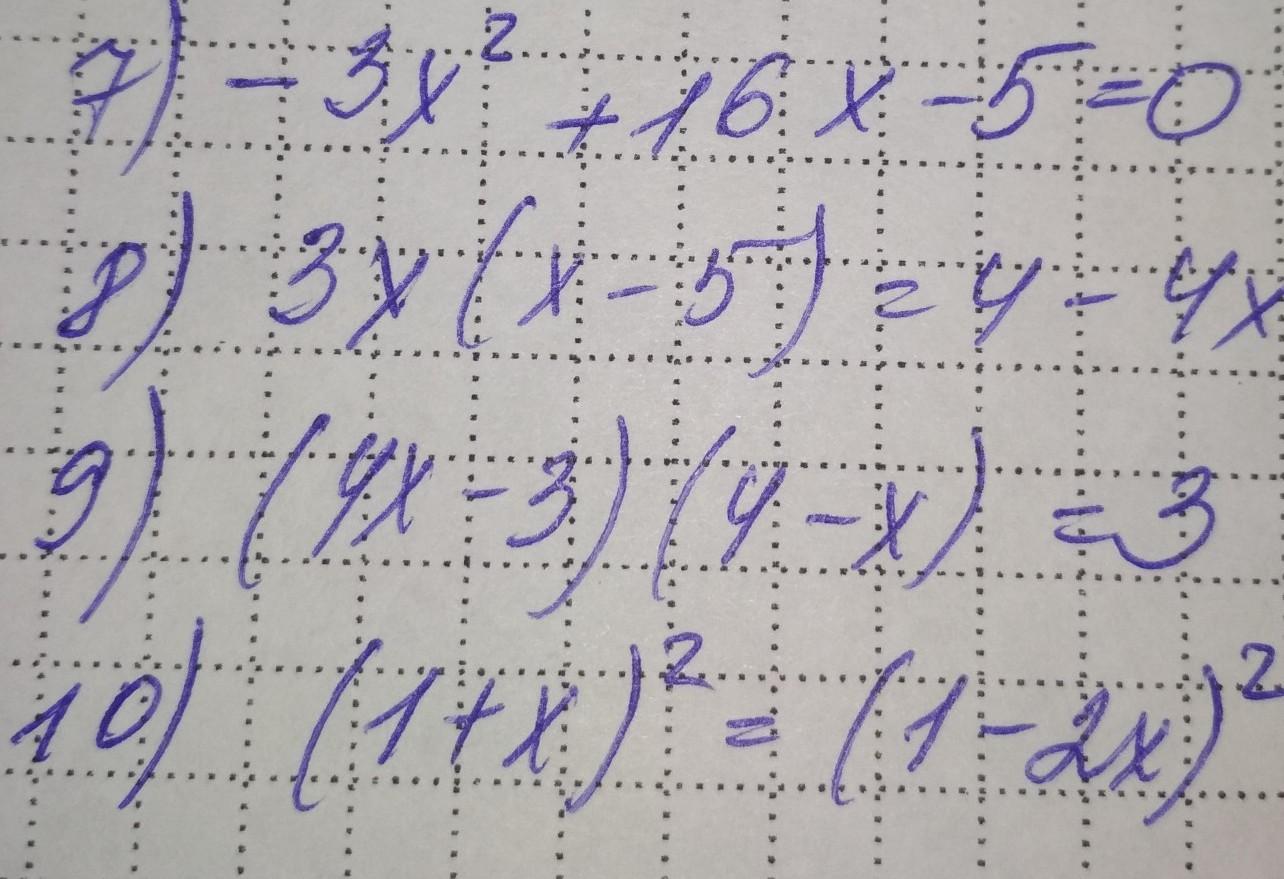 7) - 3x² + 16x - 5 = 0
8) 3x(x - 5) = 4 - 4x
9) (4x - 3)(4 - x) = 3
10) (1 + x)² = (1 - 2x)²